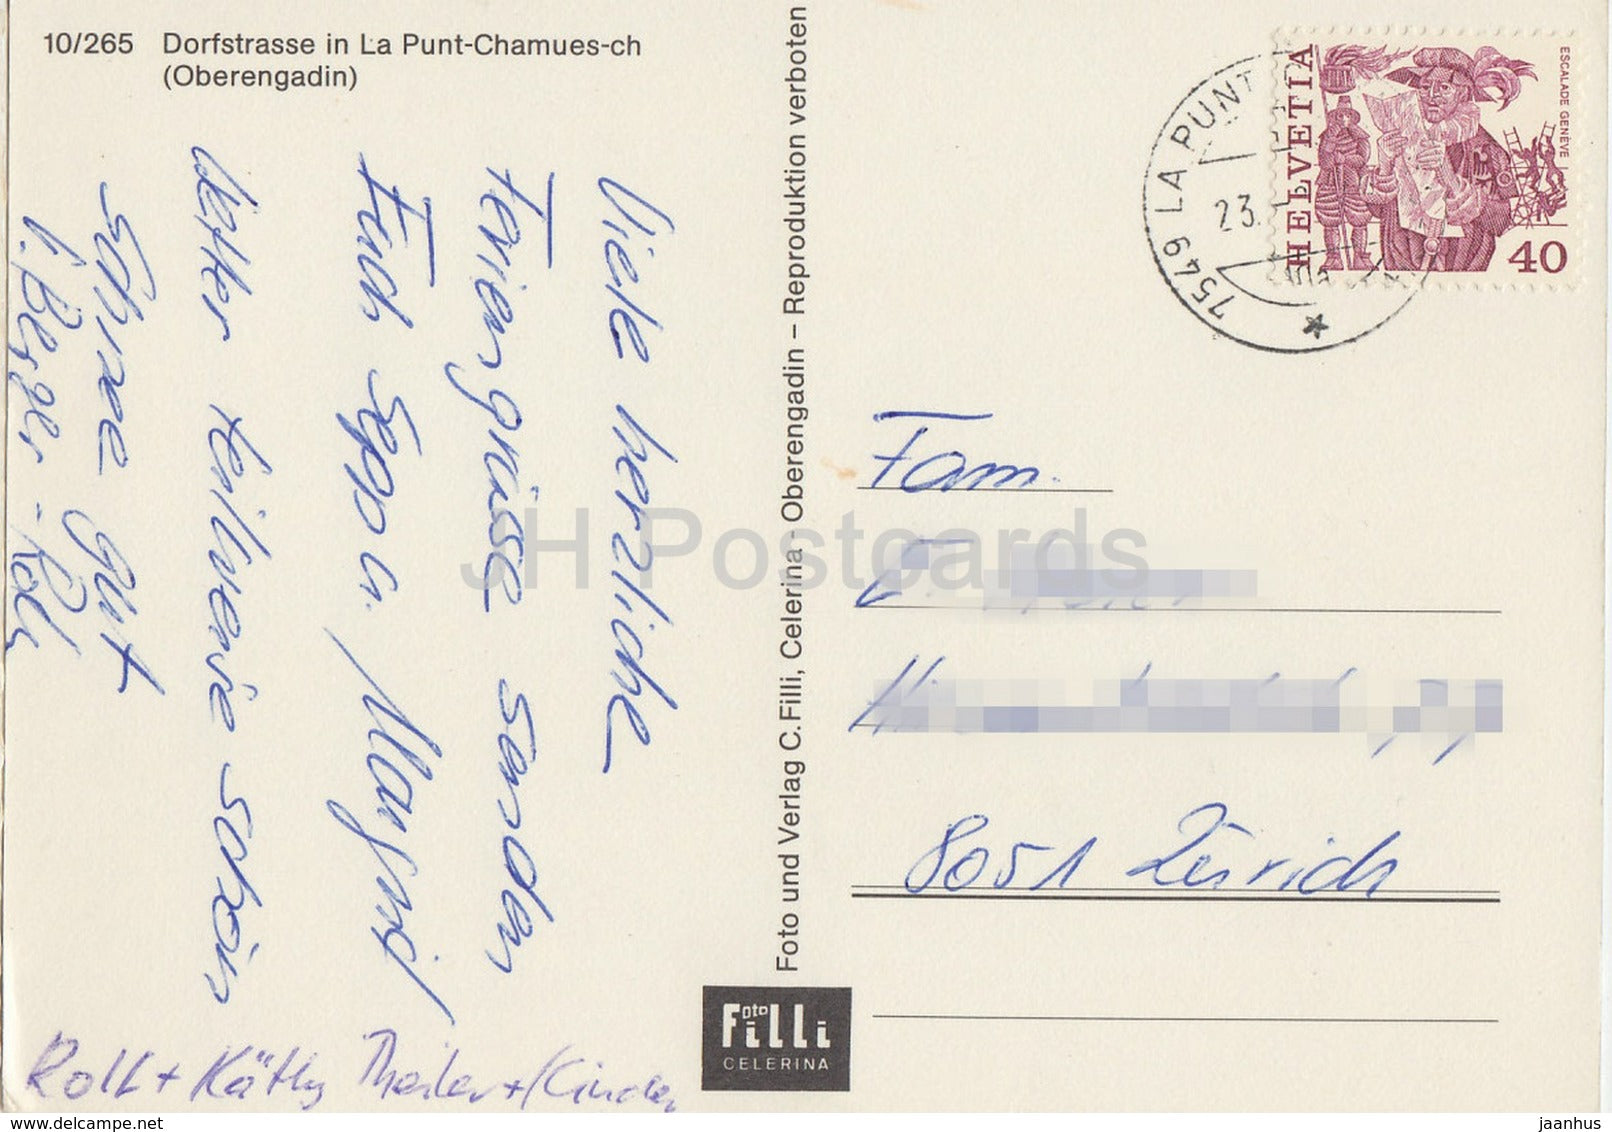 10/265 Dorfstrasse in La Punt-Chamues-ch
(Oberengadin)
Viele herzliche
Feriengrüsse senden
Euch Sepp u. Margrit
Wetter teilweise schön
Schnee gut
Rolf + Käthy Theiler + Kinder
Foto und Verlag C. Filli, Celerina - Oberengadin – Reproduktion verboten
Foto Filli
CELERINA
7549 LA PUNT
23.
HELVETIA
ESCALADE GENÈVE
40
Fam.
8051 Zürich
JH Postcards
delcampe.net
jaanhus